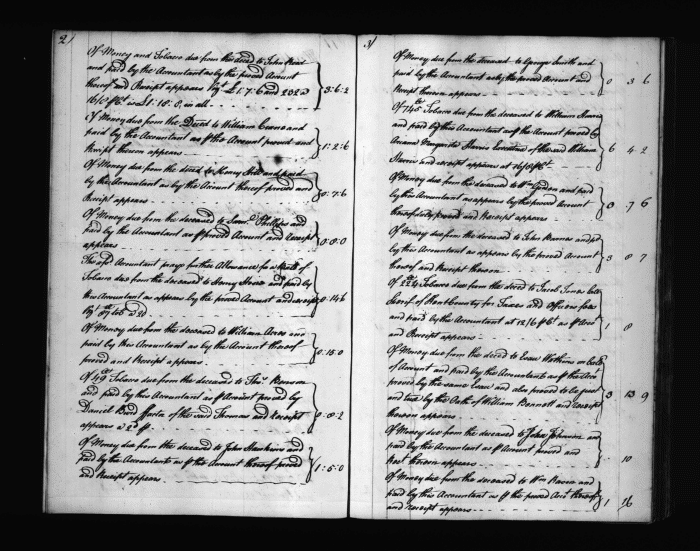 2)
Of Money and Tobaco due from the deced to John Read
and paid by the Accountant as by the proved Account
thereof and Receipt appears £1.7.6 and 202
16/8 is £1.18.8, in all 3:6:2
of Money due from the Deced to William Evans and
paid by this Accountant as the Account proved and
Receipt thereon appears 1:2:6
Of Money due from the deced to Henry Hill and paid
by this Accountant as by the Account thereof proved and
Receipt appears 0:7:6
Of Money due from the deceased to Phillips and
paid by the Accountant as proved Account and Receipt
appears 0:8:0
This Accountant prays further Allowance for
Tobacco due from the deceased to Henry and paid by
this Accountant as appears by the proved Account and receipt 0:14:6
Of Money due from the deceased to William and
paid by this Accountant as by the Account thereof
proved and Receipt appears 0:15:0
Of 49 Tobaco due from the deceased to Thos. Benson
and paid by this Accountant as Account proved by
Daniel of the said Thomas and Receipt
appears 0:8:2
Of Money due from the deceased to John Hawkins and
paid by the Accountants as the Account thereof proved
and Receipt appears 1:5:0
3)
Of Money due from the deceased to George Smith and
paid by the Accountant as by the proved Account and
Receipt thereon appears 0 3 6
Of 745 Tobaco due from the deceased to William Harris
and paid by this Accountant as the Account proved by
Margarita Harris Executrix of the said William
Harris and receipt appears at 6 4 2
Of Money due from the deceased to and paid
by this Accountant as appears by the proved Account
thereof proved and Receipt appears 0 7 6
Of Money due from the deceased to John Barnes and
by this Accountant as appears by the proved Account
thereof and Receipt thereon 3 0 7
Of 224 Tobaco due from the deceased to Jacob Jones late
Sherif of Kent County for Taxes and Officers fees
and paid by the Accountant at 12/6 as
and Receipt appears 1 8
Of Money due from the deced to Evan Watkins on
of Account and paid by the Accountants as the
proved by the same Evan and also proved to be just
and true by the Oath of William Bennett and Receipt
thereon appears 3 13 9
Of Money due from the deceased to John Johnson and
paid by the Accountant as Account proved and
thereon appears 10
Of Money due from the deceased to Wm and
paid by this Accountant as the proved thereof
and Receipt appears 1 16